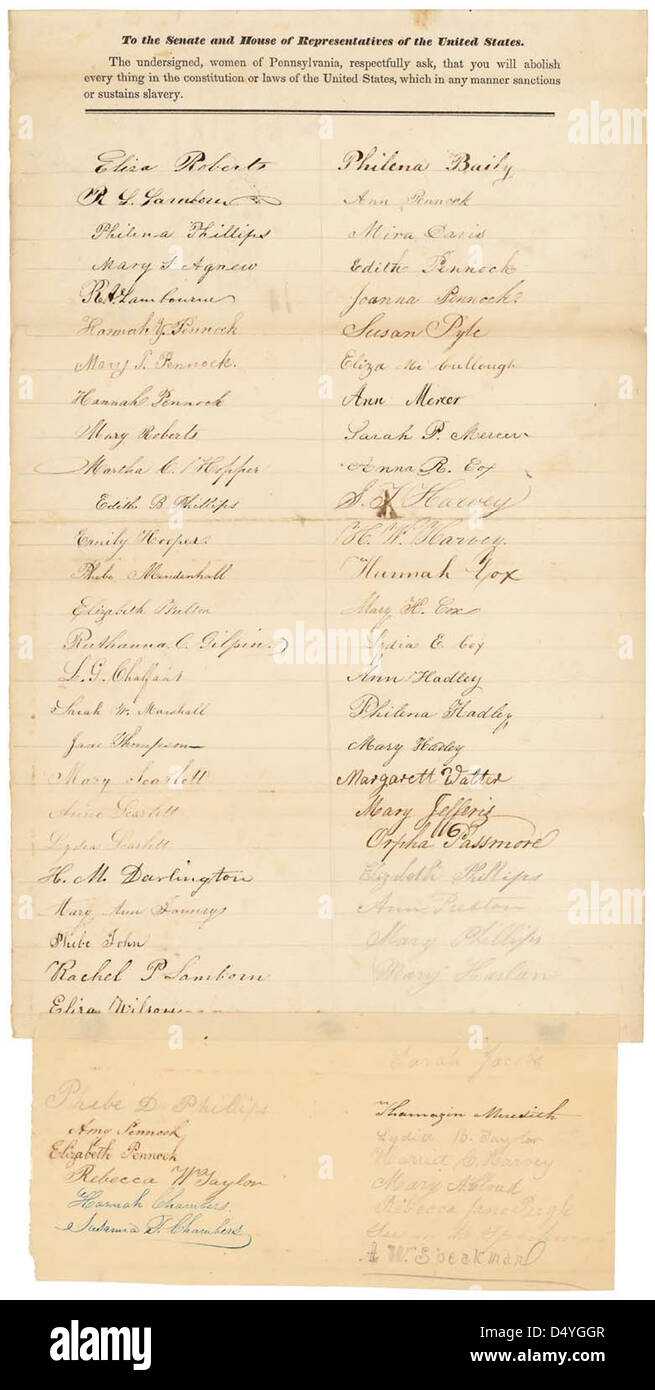 To the Senate and House of Representatives of the United States.
The undersigned, women of Pennsylvania, respectfully ask, that you will abolish
every thing in the constitution or laws of the United States, which in any manner sanctions
or sustains slavery.
Eliza Roberts
R L Lamborn
Philena Phillips
Mary S Agnew
R. A. Lambourne
Hannah Y. Pennock
Mary J. Pennock.
Hannah Pennock
Mary Roberts
Martha C. Hopper
Edith B Phillips
Emily Hooper.
Phebe Mendenhall
Elizabeth
Ruthanna C. Gilpin.
L. G. Chalfant
Sarah W. Marshall
Jane Thompson
Mary Scarlett
Anne Scarlett
Lydia Scarlett
H. M. Darlington
Mary Ann
Phebe John
Rachel P Lamborn
Eliza Wilson
Philena Baily
Ann Pennock
Mira Davis
Edith Pennock
Joanna Pennock.
Susan Pyle
Eliza Mc Cullough
Ann Mercer
Sarah P. Mercer
Anna R. Cox
S. T Harvey
H. W. Harvey.
Hannah Cox
Mary H. Cox
Lydia E. Cox
Ann Hadley
Philena Hadley
Mary Hadley
Margarett Walter
Mary Jefferis
Orpha Passmore
Elizabeth Phillips
Ann Preston
Mary Phillips
Mary Harlan
Sarah Jacobs
Phebe D Phillips
Amy Pennock
Elizabeth Pennock
Rebecca W Taylor
Hannah Chambers.
Susanna F. Chambers
Thamazin Meredith
Lydia B. Taylor
Harriet C Harvey
Mary McCloud
Rebecca Jane Pugh
A W. Speakman
alamy
alamy
Image ID: D4YGGR
www.alamy.com